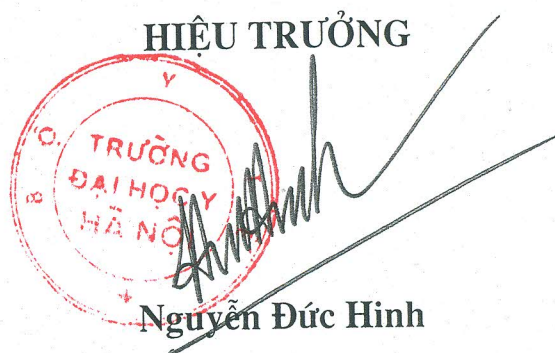 HIỆU TRƯỞNG
B Ộ Y
TRƯỜNG
ĐẠI HỌC Y
HÀ NỘI
Nguyễn Đức Hinh